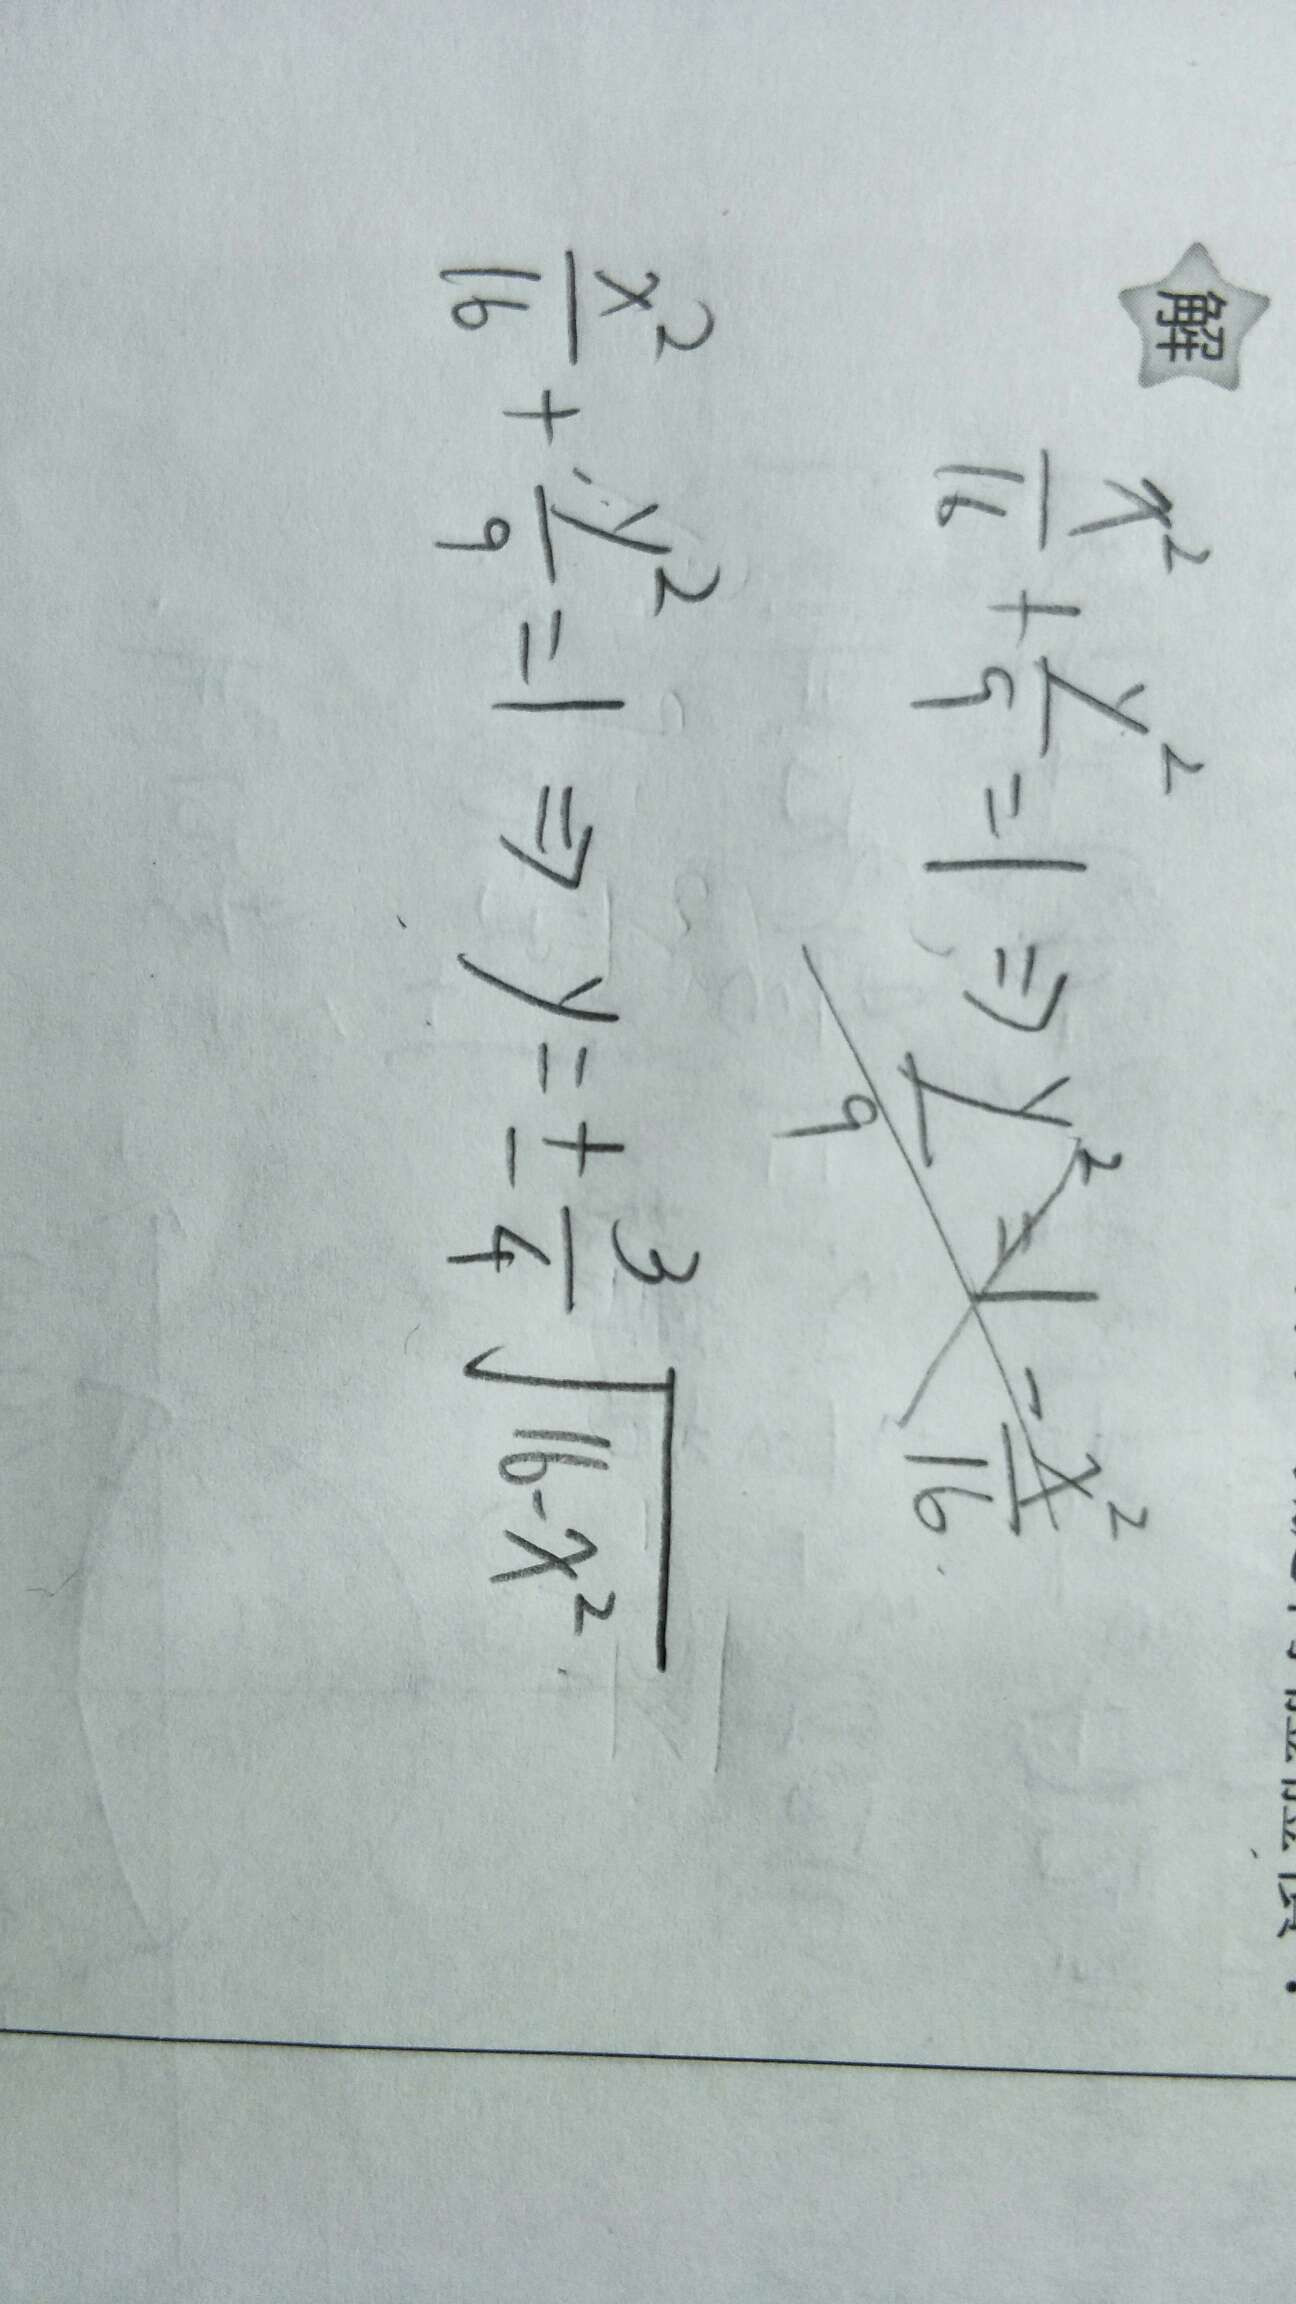 解
x²/16 + y²/9 = 1 ⇒ y²/9 = 1 - x²/16
x²/16 + y²/9 = 1 ⇒ y = ± 3/4 √(16-x²)